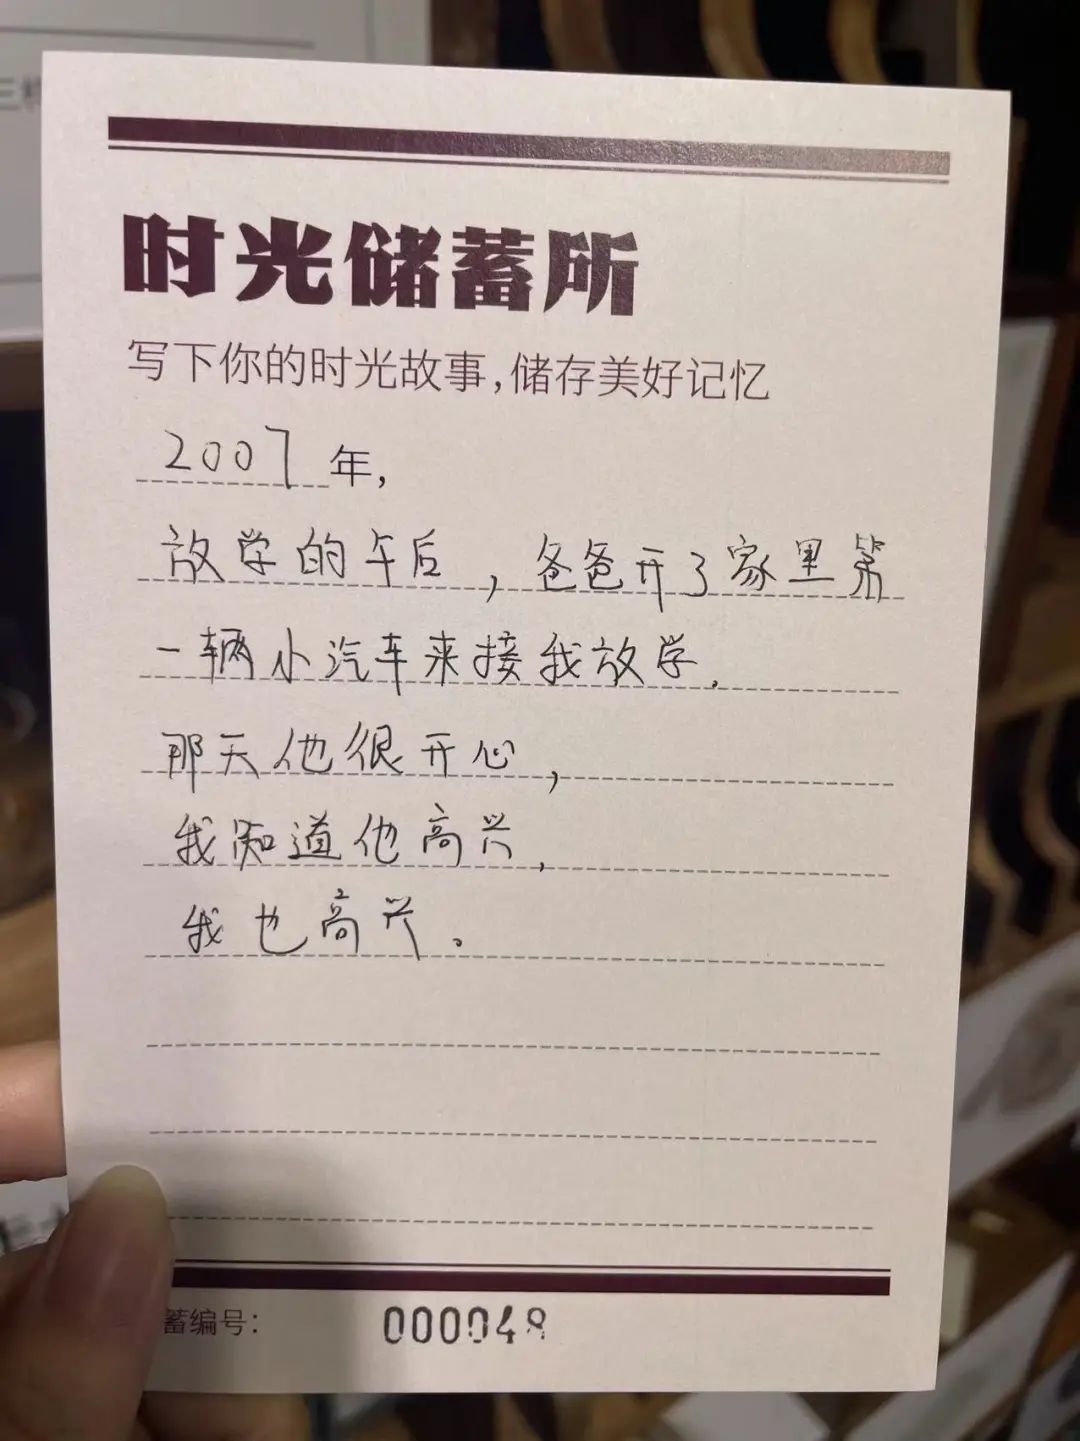 时光储蓄所
写下你的时光故事,储存美好记忆
2007年,
放学的午后,爸爸开了家里第
一辆小汽车来接我放学.
那天他很开心,
我知道他高兴,
我也高兴。
蓄编号: 000048